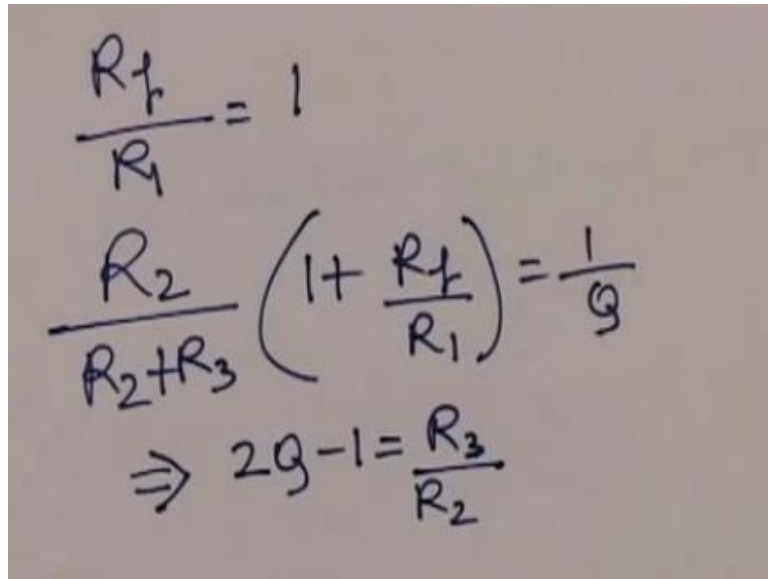 R_f / R_1 = 1
R_2 / (R_2+R_3) (1 + R_f / R_1) = 1 / Q
⇒ 2Q-1 = R_3 / R_2